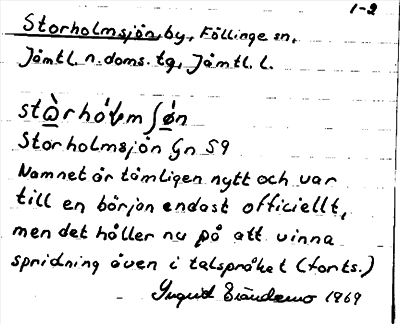 1-2
Storholmsjön, by, Föllinge sn,
Jämtl. n. doms. tg, Jämtl. l.
Storholmsjön Gn 59
Namnet är tämligen nytt och var
till en början endast officiellt,
men det håller nu på att vinna
spridning även i talspråket (forts.)
Ingrid 1969